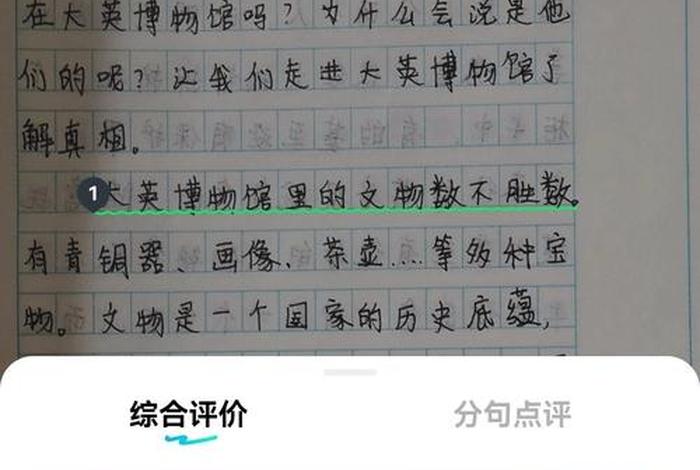 在大英博物馆吗？为什么会说是他
们的呢？让我们走进大英博物馆了
解真相。
1
大英博物馆里的文物数不胜数。
有青铜器、画像、茶壶……等多种宝
物。文物是一个国家的历史底蕴，
综合评价
分句点评